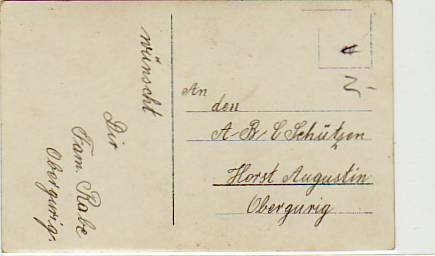 wünscht
Dir
Fam. Rabe
Obergurig.
An
den
A B C Schützen
Horst Augustin
Obergurig